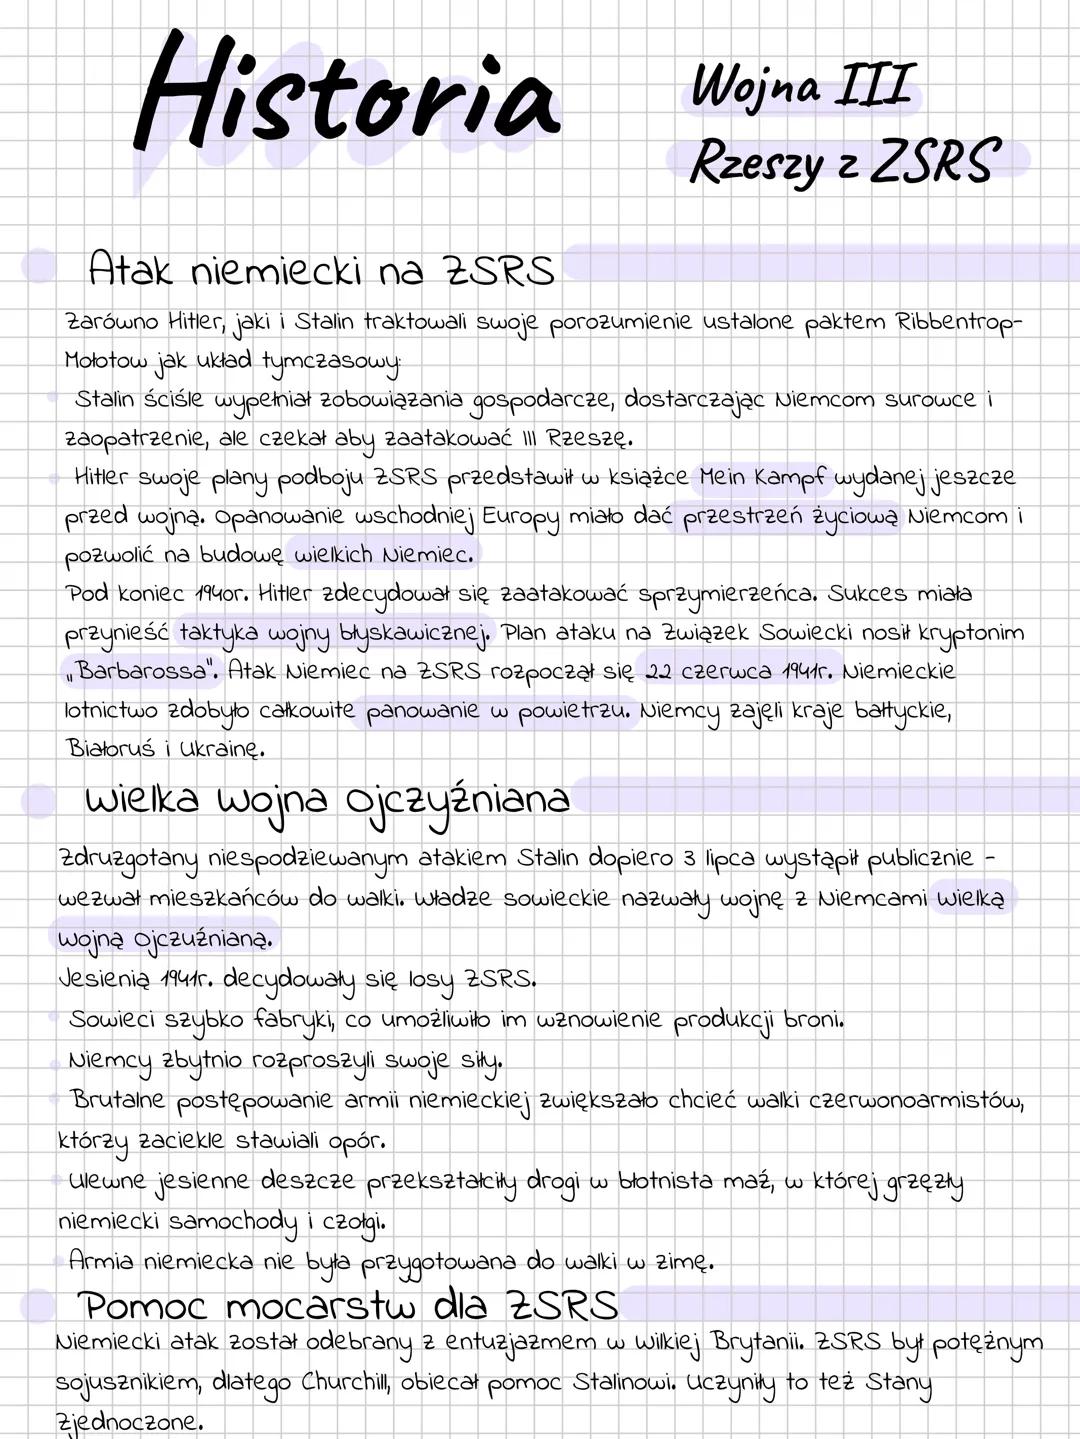 Historia
Wojna III
Rzeszy z ZSRS
Atak niemiecki na ZSRS
Zarówno Hitler, jaki i Stalin traktowali swoje porozumienie ustalone paktem Ribbentrop-
Mołotow jak układ tymczasowy:
Stalin ściśle wypełniał zobowiązania gospodarcze, dostarczając Niemcom surowce i
zaopatrzenie, ale czekał aby zaatakować III Rzeszę.
Hitler swoje plany podboju ZSRS przedstawił w książce Mein Kampf wydanej jeszcze
przed wojną. Opanowanie wschodniej Europy miało dać przestrzeń życiową Niemcom i
pozwolić na budowę wielkich Niemiec.
Pod koniec 1940r. Hitler zdecydował się zaatakować sprzymierzeńca. Sukces miała
przynieść taktyka wojny błyskawicznej. Plan ataku na Związek Sowiecki nosił kryptonim
„Barbarossa". Atak Niemiec na ZSRS rozpoczął się 22 czerwca 1941r. Niemieckie
lotnictwo zdobyło całkowite panowanie w powietrzu. Niemcy zajęli kraje bałtyckie,
Białoruś i Ukrainę.
Wielka Wojna Ojczyźniana
Zdruzgotany niespodziewanym atakiem Stalin dopiero 3 lipca wystąpił publicznie -
wezwał mieszkańców do walki. Władze sowieckie nazwały wojnę z Niemcami Wielką
Wojną Ojczuźnianą.
Jesienią 1941r. decydowały się losy ZSRS.
Sowieci szybko fabryki, co umożliwiło im wznowienie produkcji broni.
Niemcy zbytnio rozproszyli swoje siły.
Brutalne postępowanie armii niemieckiej zwiększało chcieć walki czerwonoarmistów,
którzy zaciekle stawiali opór.
Ulewne jesienne deszcze przekształciły drogi w błotnista maź, w której grzęzły
niemiecki samochody i czołgi.
Armia niemiecka nie była przygotowana do walki w zimę.
Pomoc mocarstw dla ZSRS
Niemiecki atak został odebrany z entuzjazmem w Wilkiej Brytanii. ZSRS był potężnym
sojusznikiem, dlatego Churchill, obiecał pomoc Stalinowi. Uczyniły to też Stany
Zjednoczone.